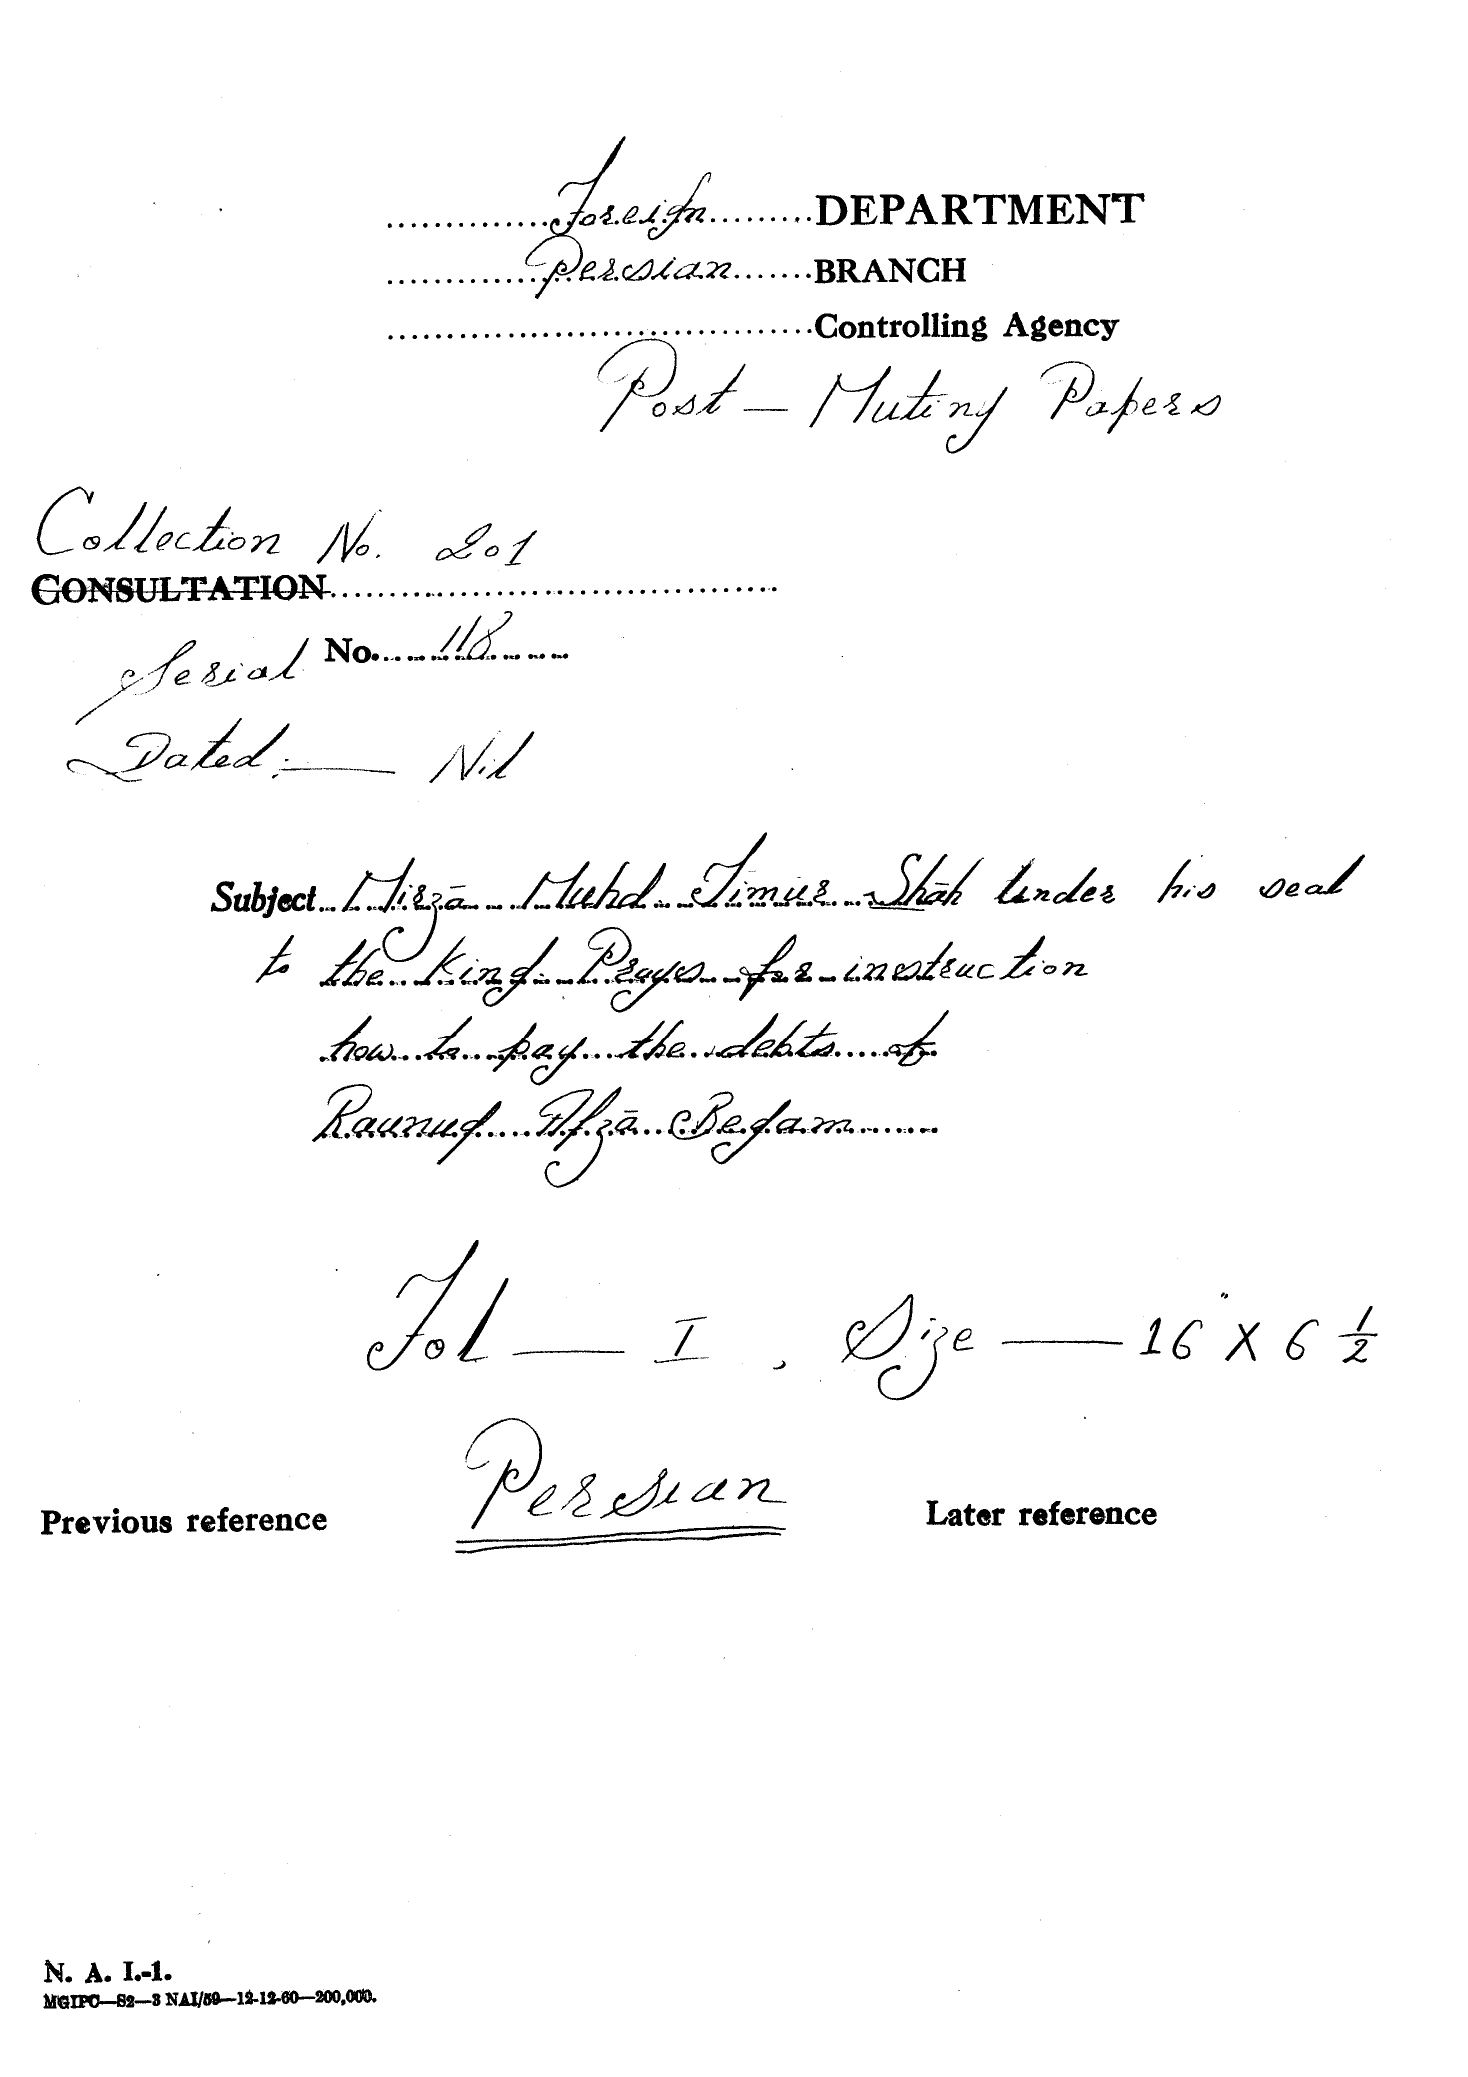 Foreign DEPARTMENT
Persian BRANCH
Controlling Agency
Post - Mutiny Papers
Collection No. 201
CONSULTATION
Serial No. 118
Dated :— Nil
Subject Mirzā Muhd Timur Shāh Under his seal
to the King. Prays for instruction
how to pay the debts of
Raunuq Afzā Begam
Fol — I , Size — 16" X 6 1/2
Persian
Previous reference Later reference
N. A. I.-1.
MGIPC—S2—3 NAI/59—12-12-60—200,000.